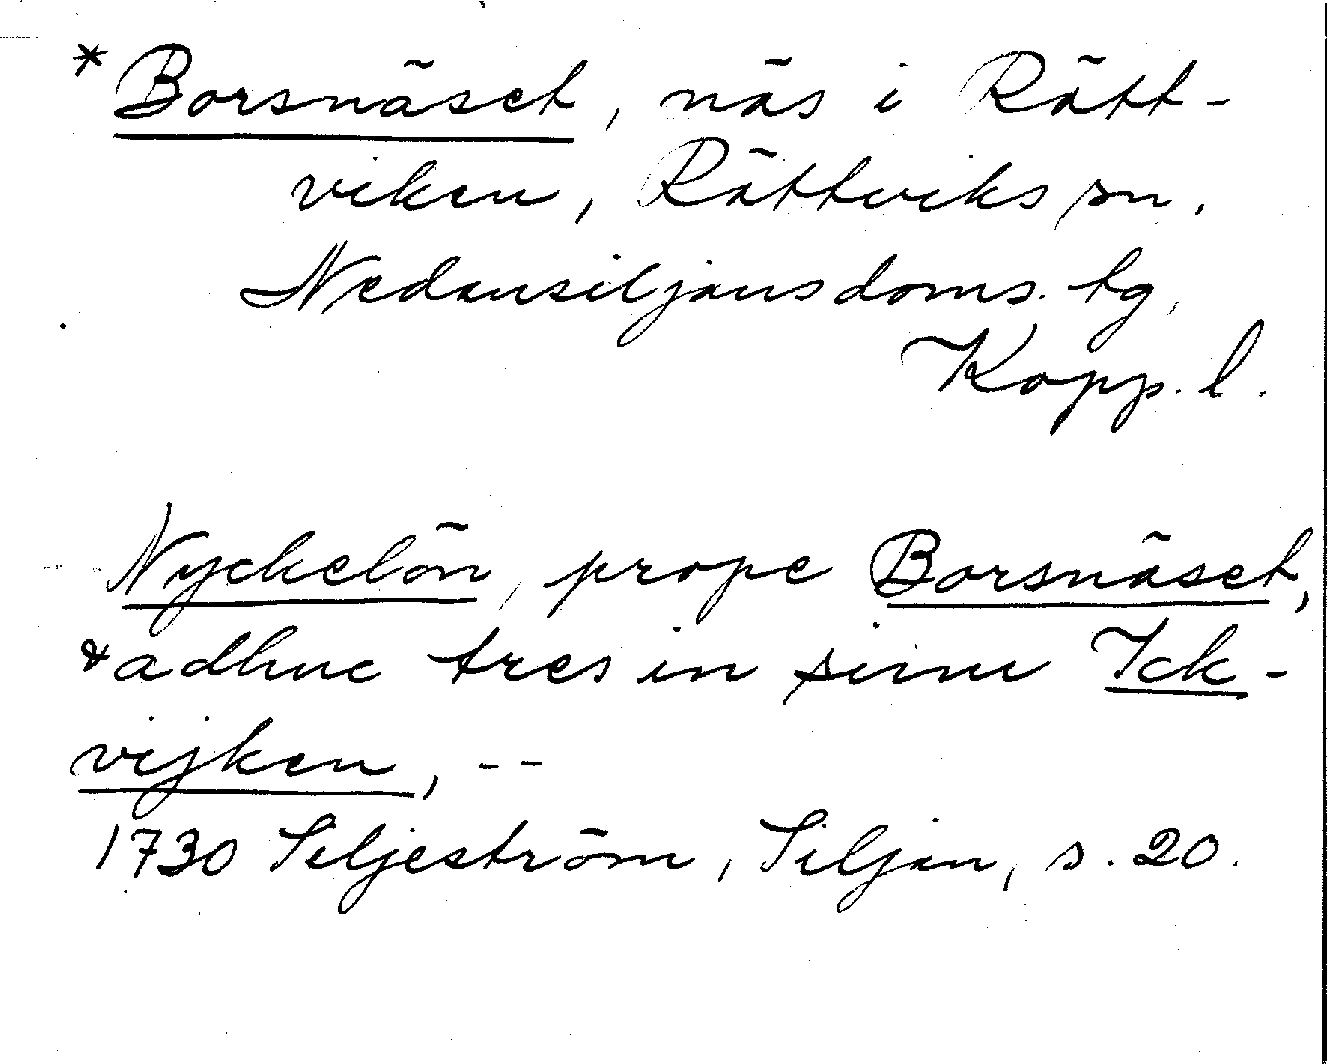 *Borsnäset, näs i Rätt-
viken, Rättviks sn.
Nedansiljans doms. tg,
Kopp. l.
Nyckelön, prope Borsnäset,
& adhuc tres in sinu Ick-
vijken, --
1730 Siljeström, Siljan, s. 20.